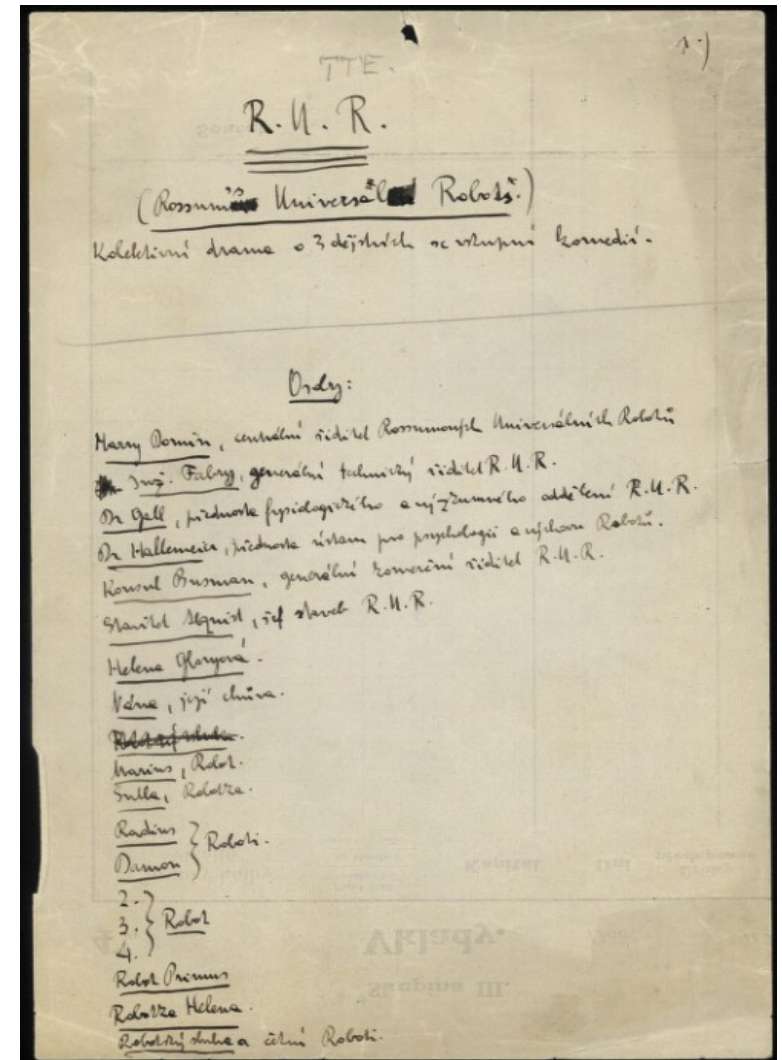 1.)
TTE.
R. U. R.
(Rossum's Universal Robots.)
Kolektivní drama o 3 dějstvích se vstupní komedií.
Osoby:
Harry Domin, centrální ředitel Rossumových Univerzálních Robotů
Inž. Fabry, generální technický ředitel R. U. R.
Dr Gall, přednosta fysiologického a výzkumného oddělení R. U. R.
Dr Hallemeier, přednosta ústavu pro psychologii a výchovu Robotů.
Konsul Busman, generální komerční ředitel R. U. R.
Stavitel Alquist, šéf staveb R. U. R.
Helena Gloryová.
Nána, její chůva.
Marius, Robot.
Sulla, Robotka.
Radius } Roboti.
Damon
2.
3. } Robot
4.
Robot Primus
Robotka Helena.
Robotský sluha a četní Roboti.
Kapitál
Dní
Vklady.
Skupina III.